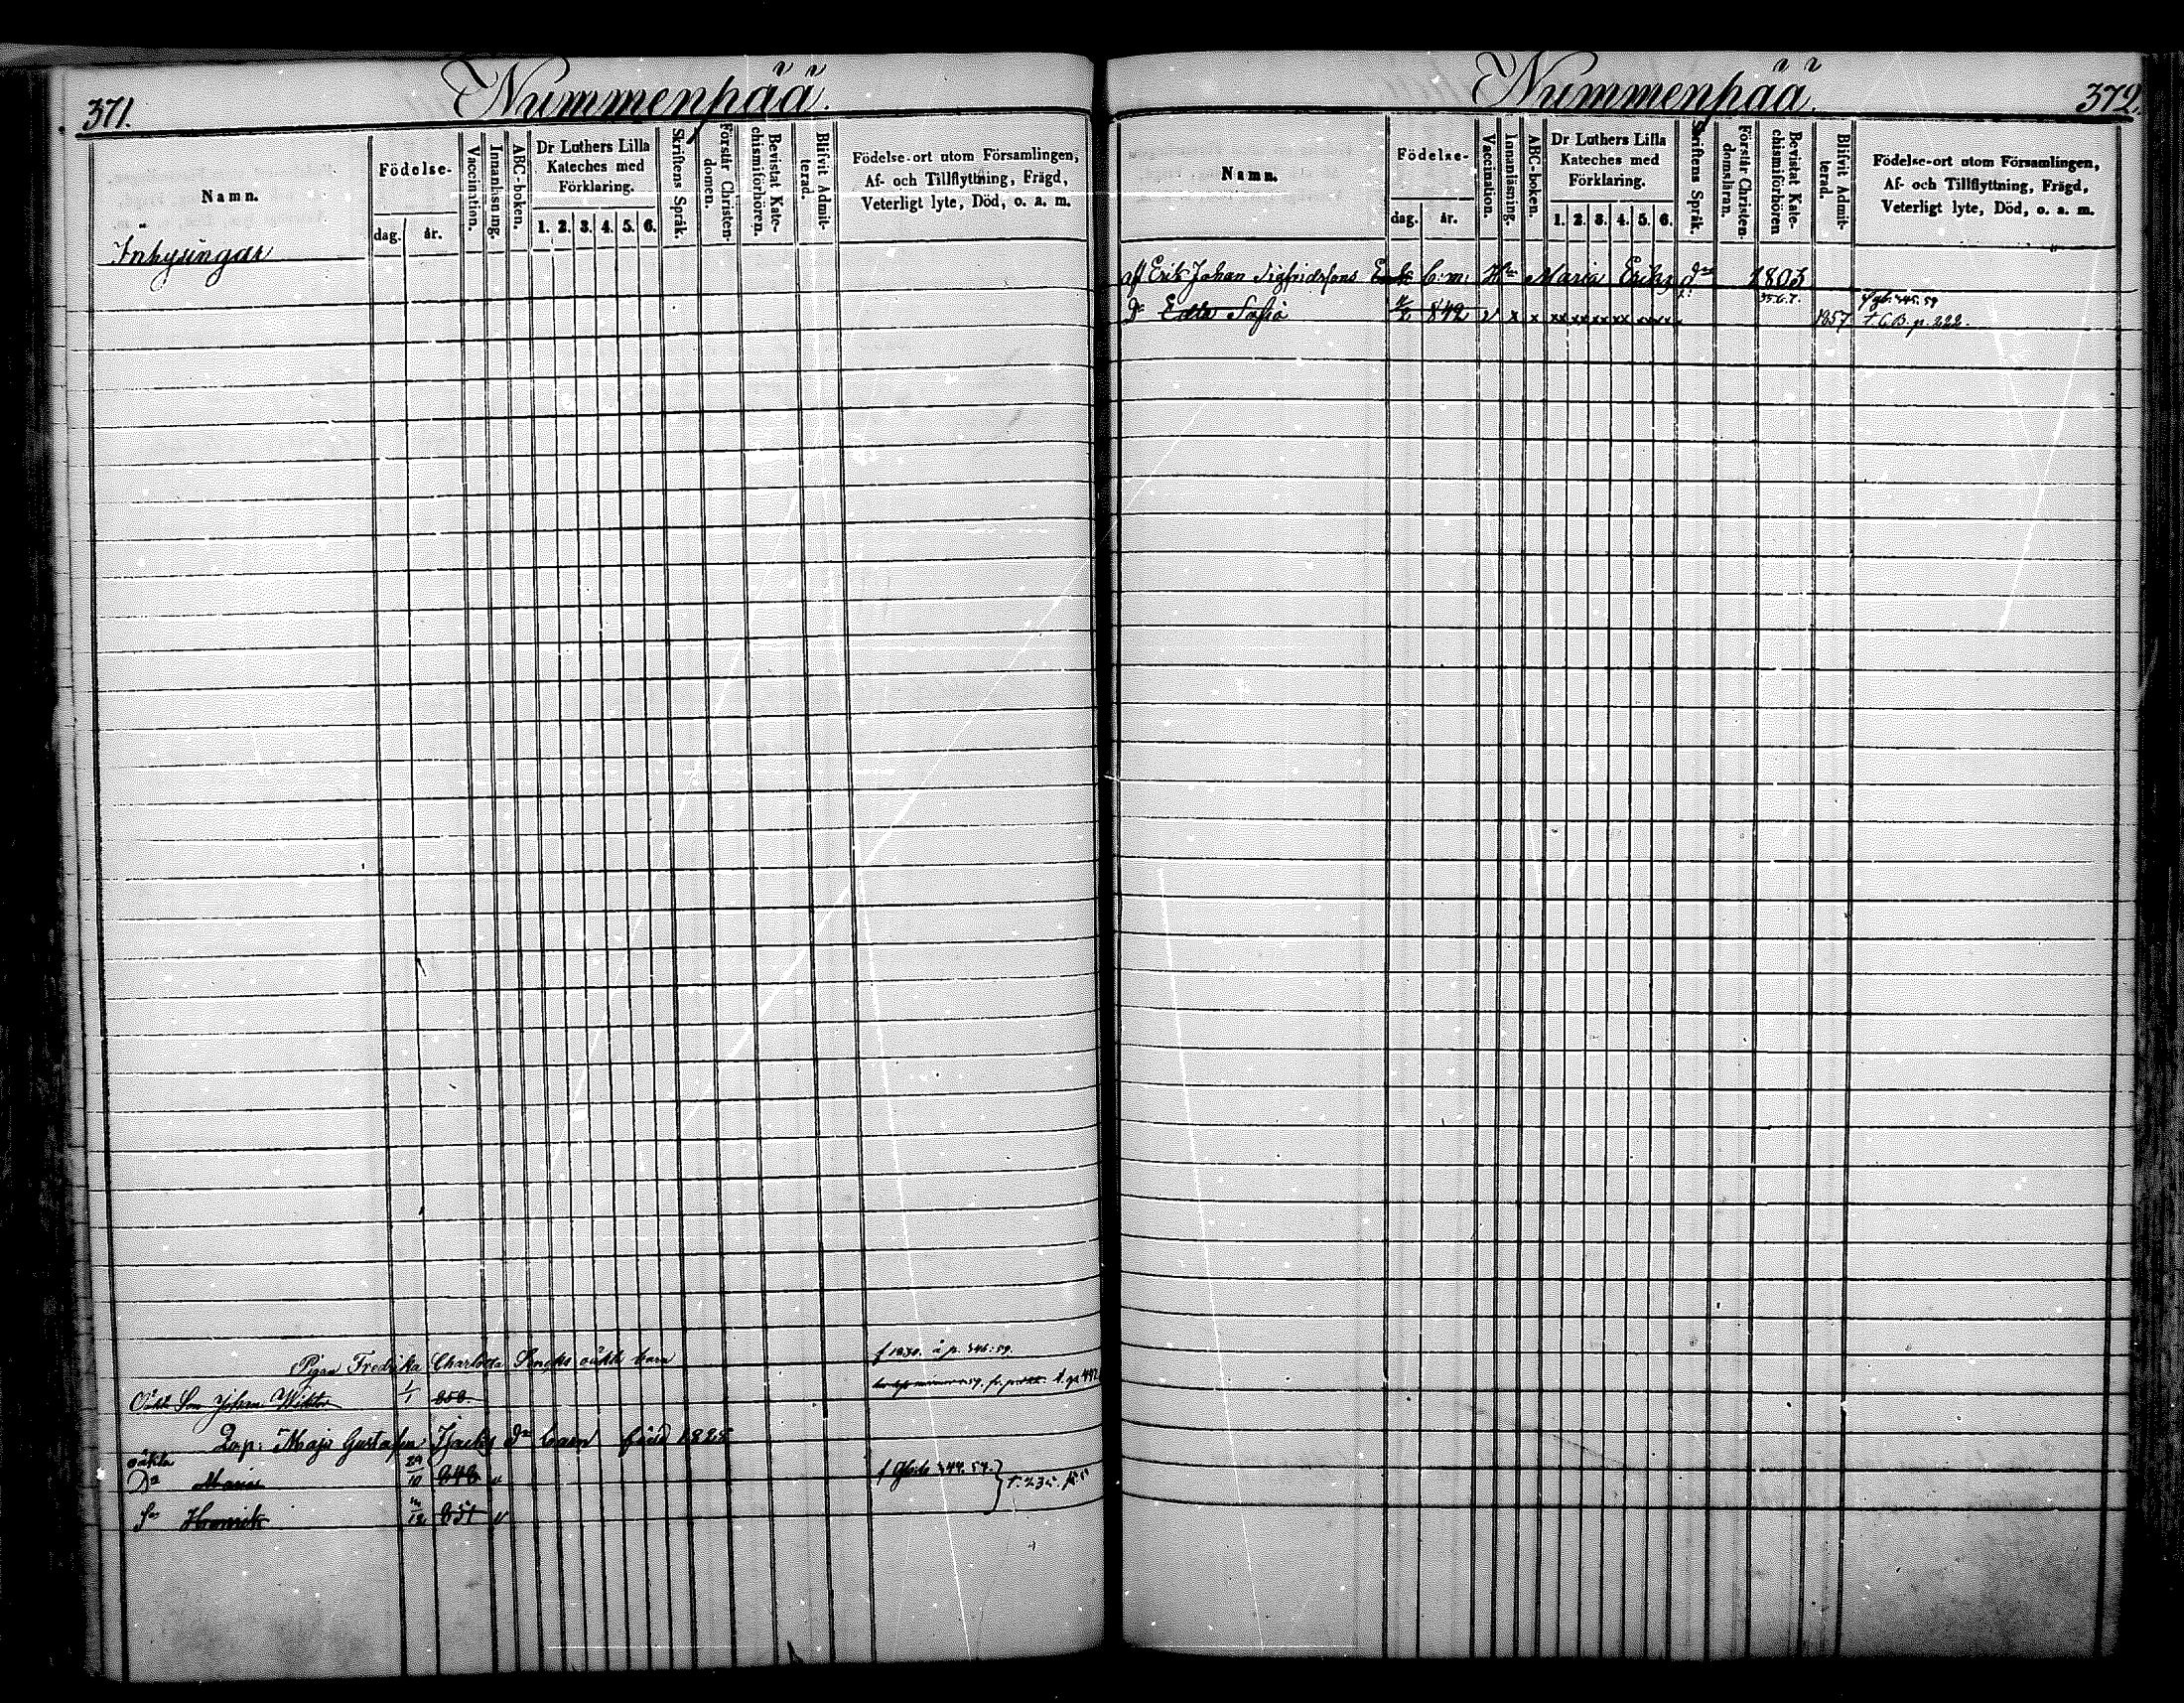 371.
Nummenpää.
Namn.
Födelse-
dag.
år.
Vaccination.
Innanläsning.
ABC-boken.
Dr Luthers Lilla
Kateches med
Förklaring.
1. 2. 3. 4. 5. 6.
Skriftens Språk.
Förstår Christen-
domen.
Bevistat Kate-
chismiförhören.
Blifvit Admit-
terad.
Födelse-ort utom Församlingen,
Af- och Tillflyttning, Frägd,
Veterligt lyte, Död, o. a. m.
Inhysingar
Pigan Fredrika Charlotta oäkta barn
f 1830. å p. 346:59.
Oäkt Son Johan Wiktor 1/1 850
Inp: Maja Gustafva Isacks dr barn född 1825
oäkta
Dr Maria 29/10 848 v
t. 235.
Sn Henrik 14/12 851 v
Nummenpää.
372.
Namn.
Födelse-
dag.
år.
Vaccination.
Innanläsning.
ABC-boken.
Dr Luthers Lilla
Kateches med
Förklaring.
1. 2. 3. 4. 5. 6.
Skriftens Språk.
Förstår Christen-
domsläran.
Bevistat Kate-
chismiförhören
Blifvit Admit-
terad.
Födelse-ort utom Församlingen,
Af- och Tillflyttning, Frägd,
Veterligt lyte, Död, o. a. m.
aff Erik Johan Sigfridssons b:m: Maria Eriks dr 1803
Dr Edla Sofia 842 v x x xx xx xx xx xx xx 35.6.7. 1857 345.59
t. C.B. p. 222.